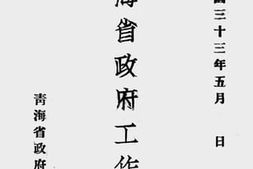 國三十三年五月 日
海省政府工作
青海省政府